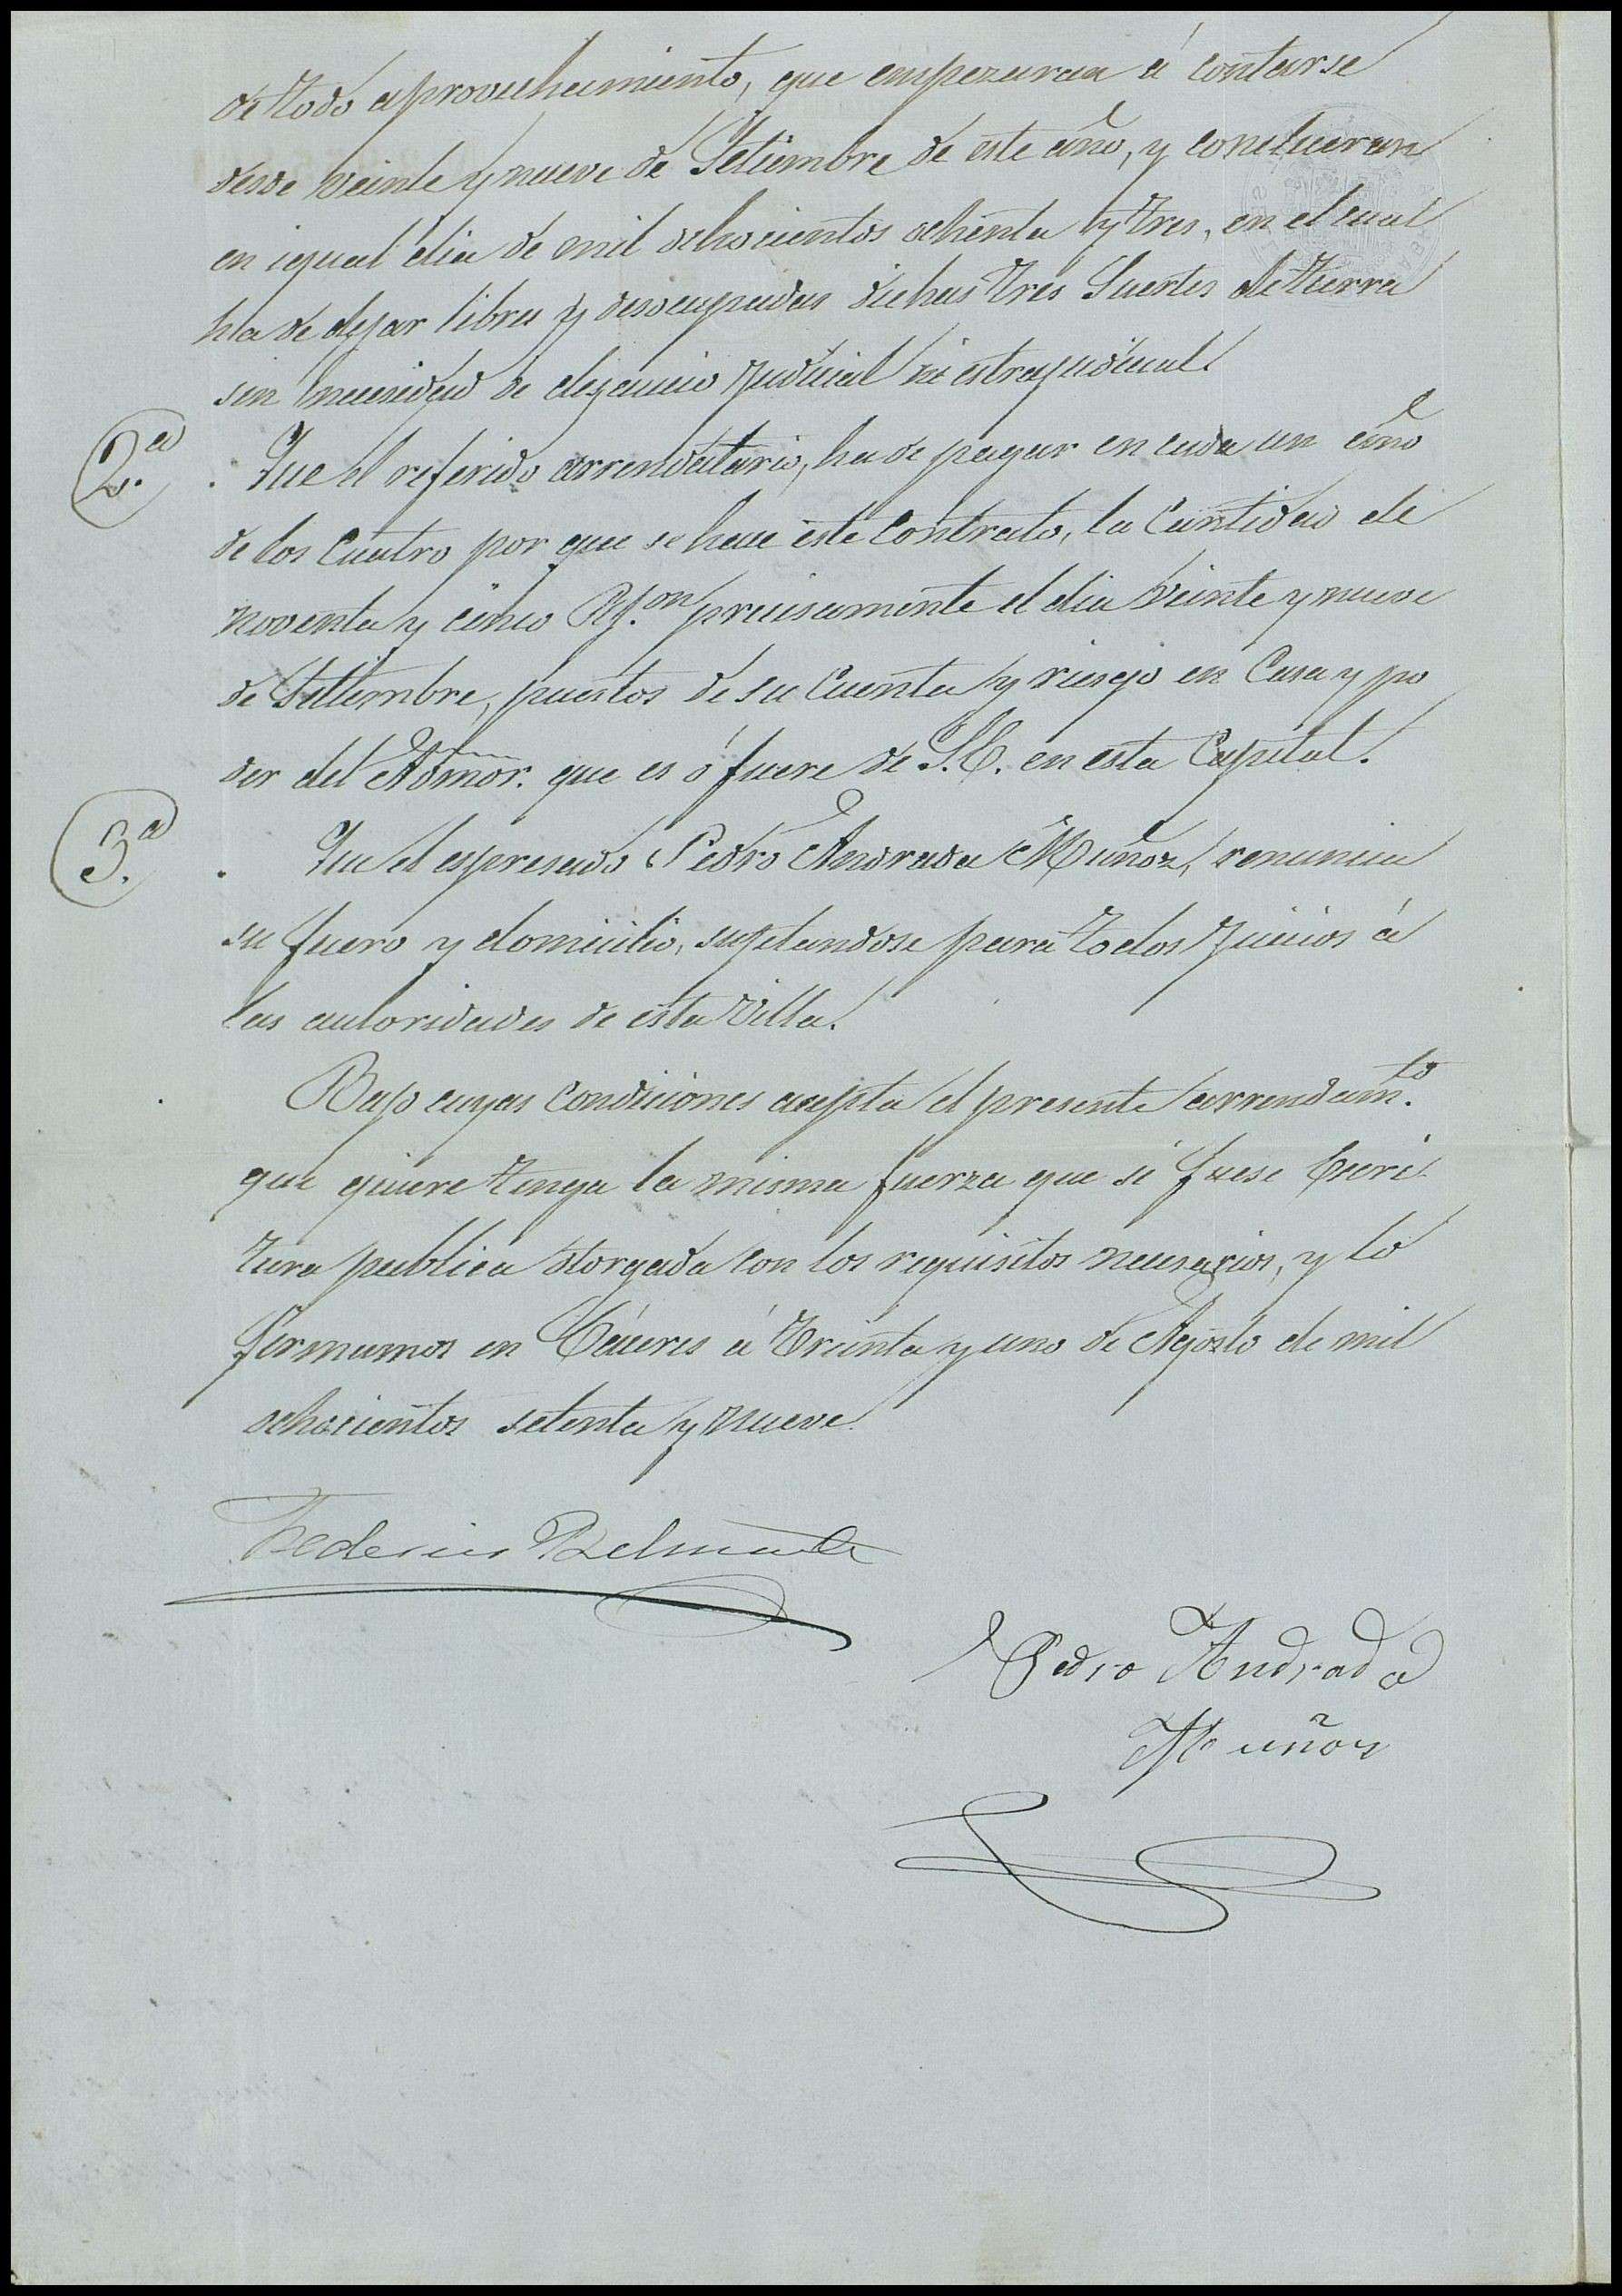 de todo aprovechamiento, que empezaran á contarse
desde veinte y nueve de Setiembre de este año, y concluiran
en igual dia de mil ochocientos ochenta y tres, en el cual
ha de dejar libres y desocupadas dichas tres Suertes de tierra
sin necesidad de desaucio judicial ni estrajudicial.
2.ª Que el referido arrendatario, ha de pagar en cada un año
de los cuatro por que se hace este Contrato, la Cantidad de
noventa y cinco precisamente el dia veinte y nueve
de Setiembre, puestos de su Cuenta y riesgo en Casa y po
der del Admor. que es ó fuere de S.E. en esta Capital.
3.ª Que el espresado Pedro Andrada Muñoz, renuncia
su fuero y domicilio, sugetandose para todos juicios á
las autoridades de esta Villa.
Bajo cuyas Condiciones acepta el presente arrendam.to
que quiere tenga la misma fuerza que si fuese Escri
tura publica otorgada con los requisitos necesarios, y lo
firmamos en Cáceres á treinta y uno de Agosto de mil
ochocientos setenta y nueve.
Federico Belmonte
Pedro Andrada
Muñoz